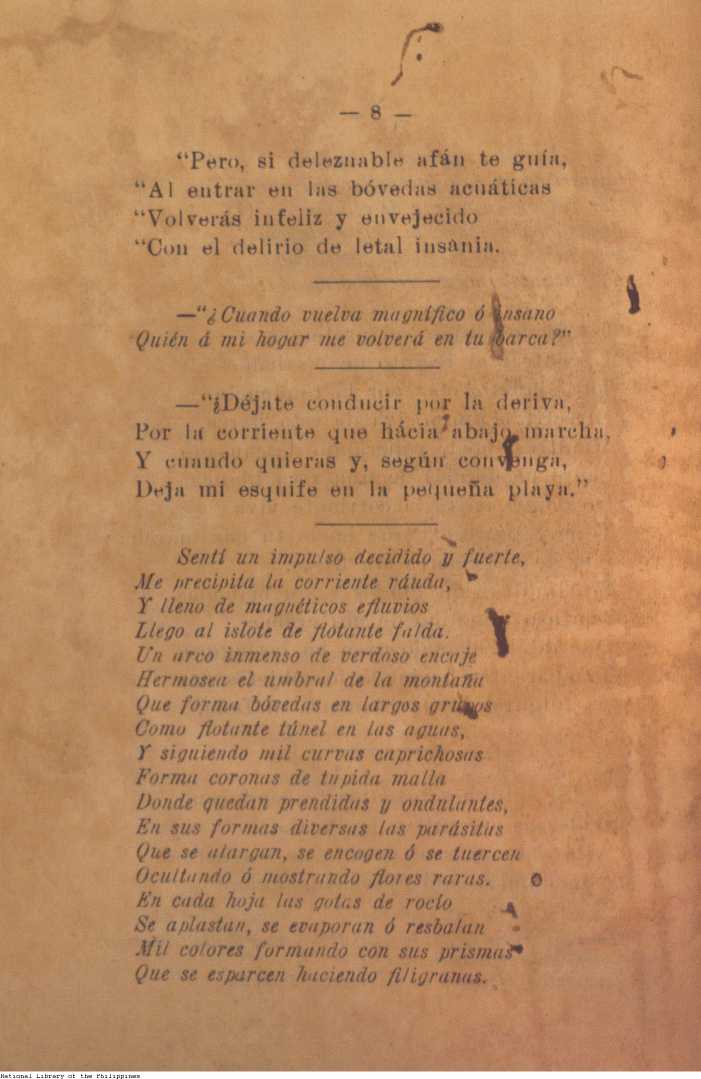 — 8 —
“Pero, si deleznable afán te guía,
“Al entrar en las bóvedas acuáticas
“Volverás infeliz y envejecido
“Con el delirio de letal insania.
—“¿Cuando vuelva magnífico ó insano
Quién á mi hogar me volverá en tu barca?”
—“¿Déjate conducir por la deriva,
Por la corriente que hácia abajo marcha,
Y cuando quieras y, según convenga,
Deja mi esquife en la pequeña playa.”
Sentí un impulso decidido y fuerte,
Me precipita la corriente ráuda,
Y lleno de magnéticos efluvios
Llego al islote de flotante falda.
Un arco inmenso de verdoso encaje
Hermosea el umbral de la montaña
Que forma bóvedas en largos grupos
Como flotante túnel en las aguas,
Y siguiendo mil curvas caprichosas
Forma coronas de tupida malla
Donde quedan prendidas y ondulantes,
En sus formas diversas las parásitas
Que se alargan, se encogen ó se tuercen
Ocultando ó mostrando flores raras.
En cada hoja las gotas de rocío
Se aplastan, se evaporan ó resbalan
Mil colores formando con sus prismas
Que se esparcen haciendo filigranas.
National Library of the Philippines